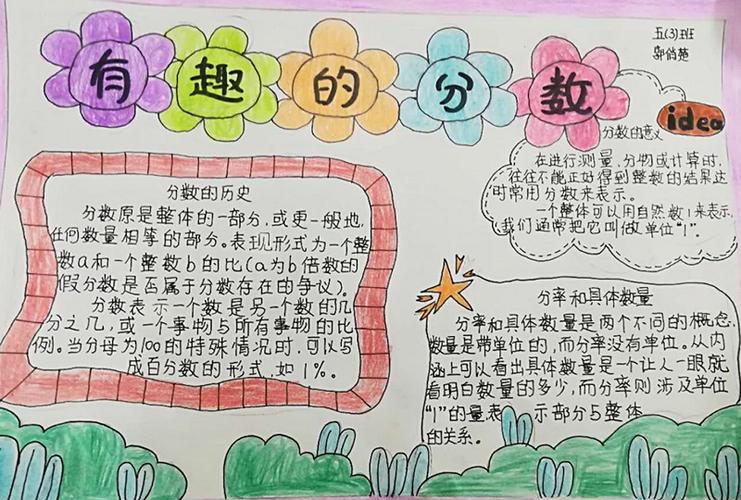 有趣的分数
五(3)班
idea
分数的意义
在进行测量、分物或计算时,
往往不能正好得到整数的结果这
时常用分数来表示。
一个整体可以用自然数1来表示,
我们通常把它叫做单位“1”.
分数的历史
分数原是整体的一部分,或更一般地,
任何数量相等的部分。表现形式为一个整
数a和一个整数b的比(a为b倍数的
假分数是否属于分数存在的争议)。
分数表示一个数是另一个数的几
分之几,或一个事物与所有事物的比
例。当分母为100的特殊情况时,可以写
成百分数的形式,如1%。
分率和具体数量
分率和具体数量是两个不同的概念.
数量是带单位的,而分率没有单位。从内
涵上可以看出具体数量是一个让人一眼就
看明白数量的多少,而分率则涉及单位
“1”的量表 示部分与整体
的关系。